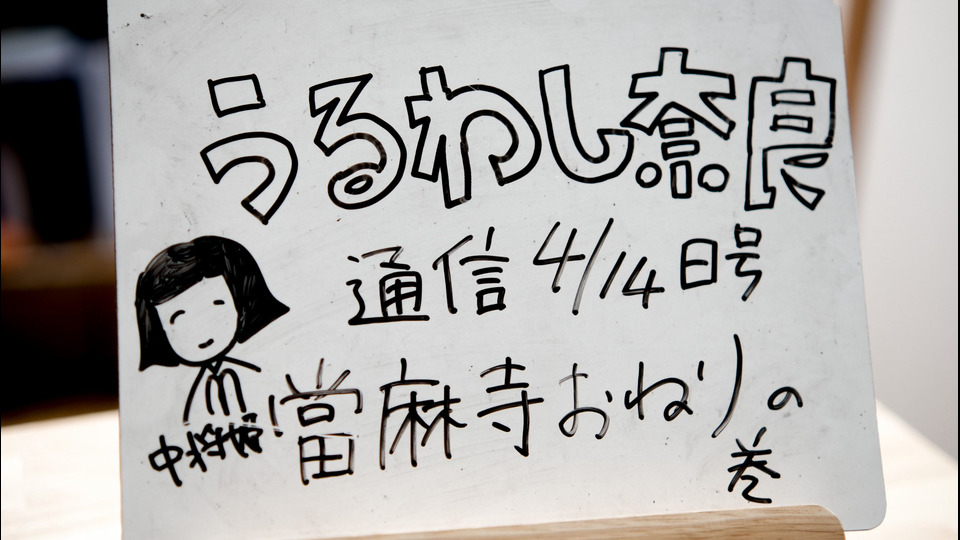 うるわし奈良
通信 4/14日号
中将姫
當麻寺おねりの
巻